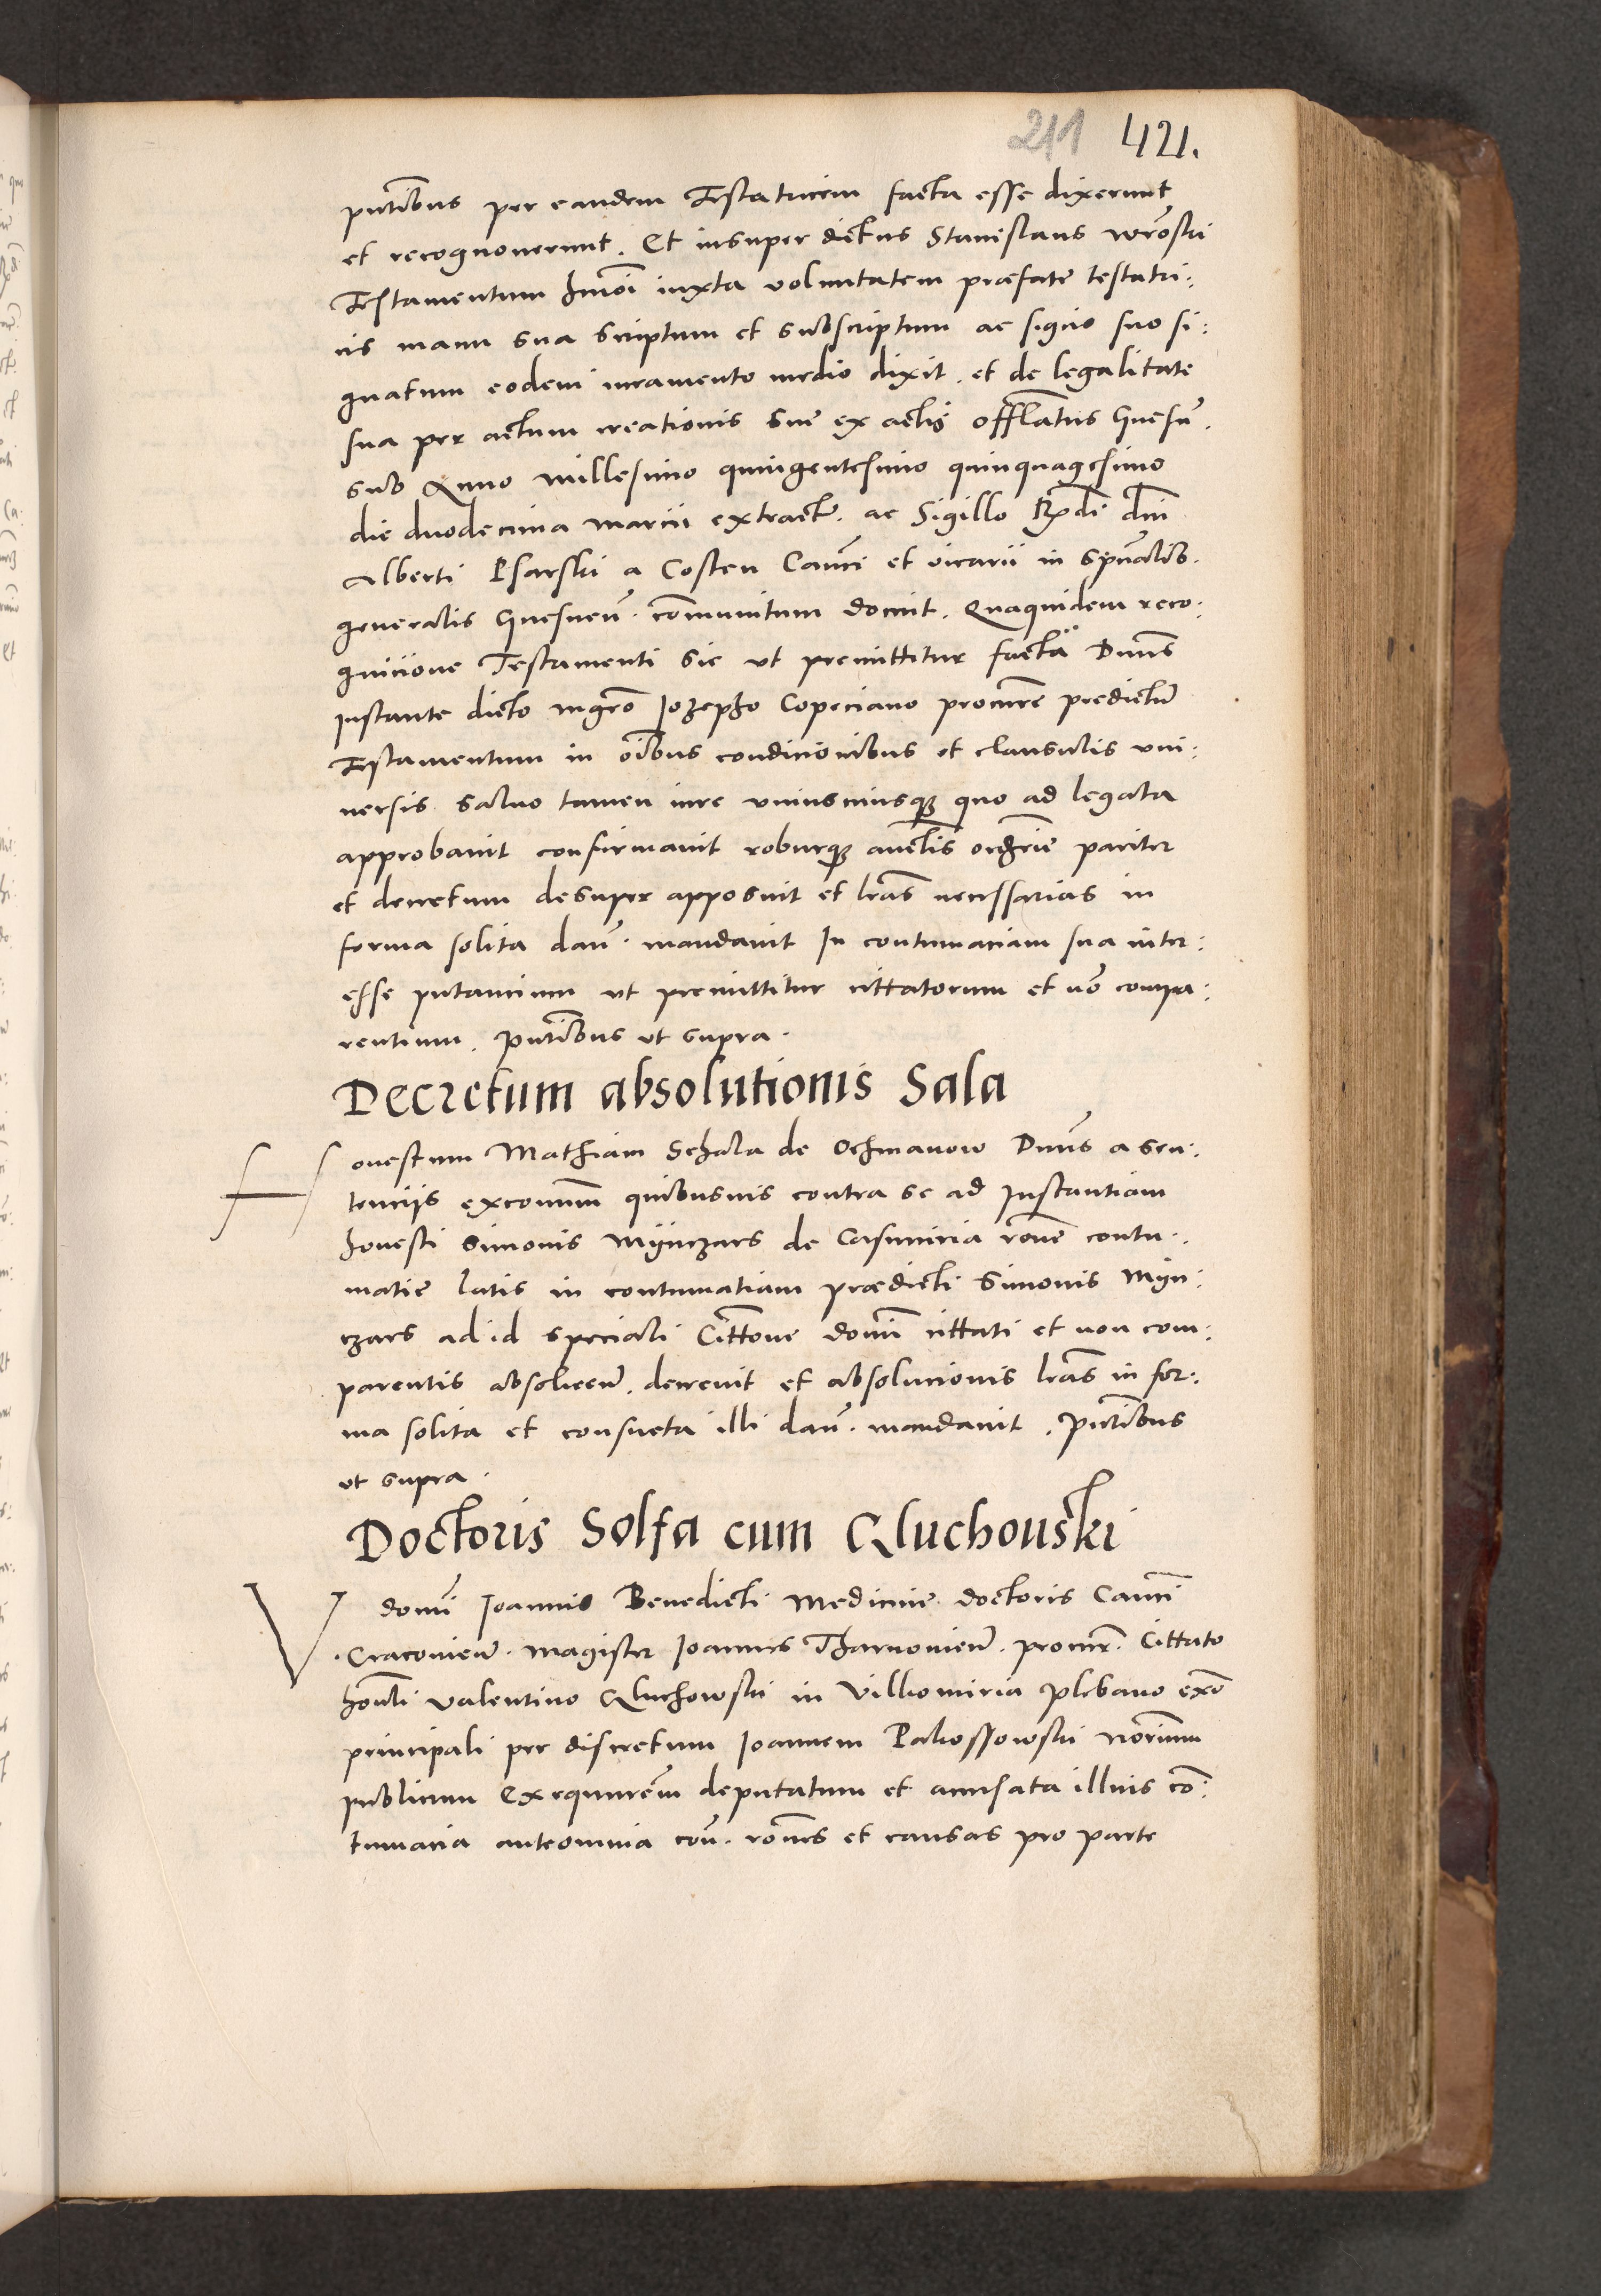 211 421.
pntibus per eandem Testatricem facta esse dixerunt
et recognoverunt. Et insuper dictus Stanislaus Wronski
Testamentum hmoi iuxta voluntatem præfate testatri:
cis manu sua scriptum et subscriptum ac signo suo si:
gnatum eodem iuramento medio dixit. et de legalitate
sua per actum creationis sue ex actis offlatus Gnesn.
sub Anno millesimo quingentesimo quinquagesimo
die duodecima marcii extract. ac Sigillo Rndi dni
Alberti Psarski a Costen Canci et vicarii in spualib.
generalis Gnesnen. communitum docuit. Quaquidem reco:
gnicione Testamenti sic ut premittitur facta Dnus
instante dicto mgro Iozepho Copeciano procure predictum
Testamentum in oibus condicionibus et clausulis uni:
versis salvo tamen iure uniuscuiusque quo ad legata
approbavit confirmavit roburque auctis ordrie pariter
et decretum desuper apposuit et lras necessarias in
forma solita dan. mandavit In contumaciam sua inter:
esse putancium ut premittitur cittatorum et no compa:
rentium. pntibus ut supra.
Decretum absolutionis Sala
Honestum Mathiam Schala de Ochmanow Dnus a sen:
tenciis excomum quibusvis contra se ad Instantiam
honesti Simonis Mÿnczars de Casimiria rone contu:
matie latis in contumatiam prædicti Simonis Mÿn:
czars ad id speciali Cittone domi cittati et non com:
parentis absolven. decrevit et absolucionis lras in for:
ma solita et consueta illi dan. mandavit. Pntibus
ut supra.
Doctoris Solfa cum Cluchouski
V domi Ioannis Benedicti Medicine doctoris Canci
Cracovien. magister Ioannes Tharnovien. procur. Cittato
honli Valentino Cluchowski in Villiomiria plebano exo
principali per discretum Ioannem Pakossowski norium
publicum Exequutrem deputatum et accusata illius co:
tumacia anteomnia con. rones et causas pro parte